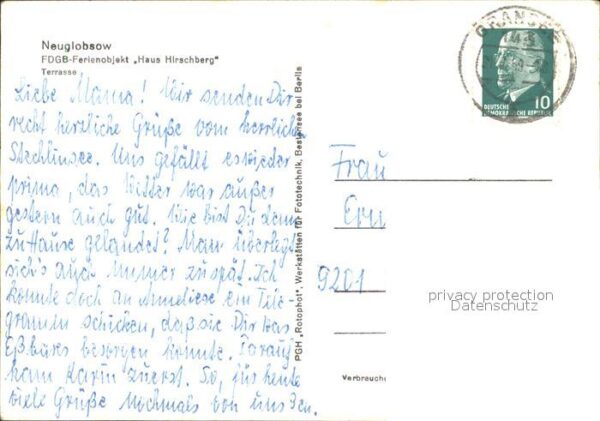 Neuglobsow
FDGB-Ferienobjekt „Haus Hirschberg"
Terrasse
Liebe Mama! Wir senden Dir
recht herzliche Grüße vom herrlichen
Stechlinsee. Uns gefällt es wieder
prima, das Wetter war außer
gestern auch gut. Wie bist Du denn
zu Hause gelandet? Man überlegt
sich's auch immer zu spät. Ich
konnte doch an Anneliese ein Tele-
gramm schicken, daß sie Dir was
Eßbares besorgen konnte. Darauf
kam Karin zuerst. So, für heute
viele Grüße nochmals von uns 3en.
PGH „Rotophot", Werkstätten für Fototechnik, Bestensee bei Berlin
DEUTSCHE
DEMOKRATISCHE REPUBLIK
10
Frau
Ern
9201
privacy protection
Datenschutz
Verbrauche